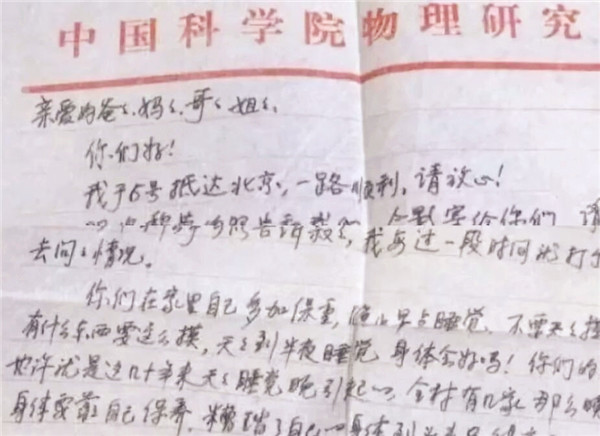 中国科学院物理研究
亲爱的爸〻、妈〻、哥〻姐〻、
你们好！
我于15号抵达北京，一路顺利，请放心！
告 我每过一段时间就打个
去问〻情况。
你们在家里自己多加保重，晚上早点睡觉、不要天〻摸
有什么东西要这么摸，天〻到半夜睡觉 身体会好吗！你们的
也许就是这几十年来天〻睡觉晚引起的，全村有几家那么晚
身体要靠自己保养， 自己的身体